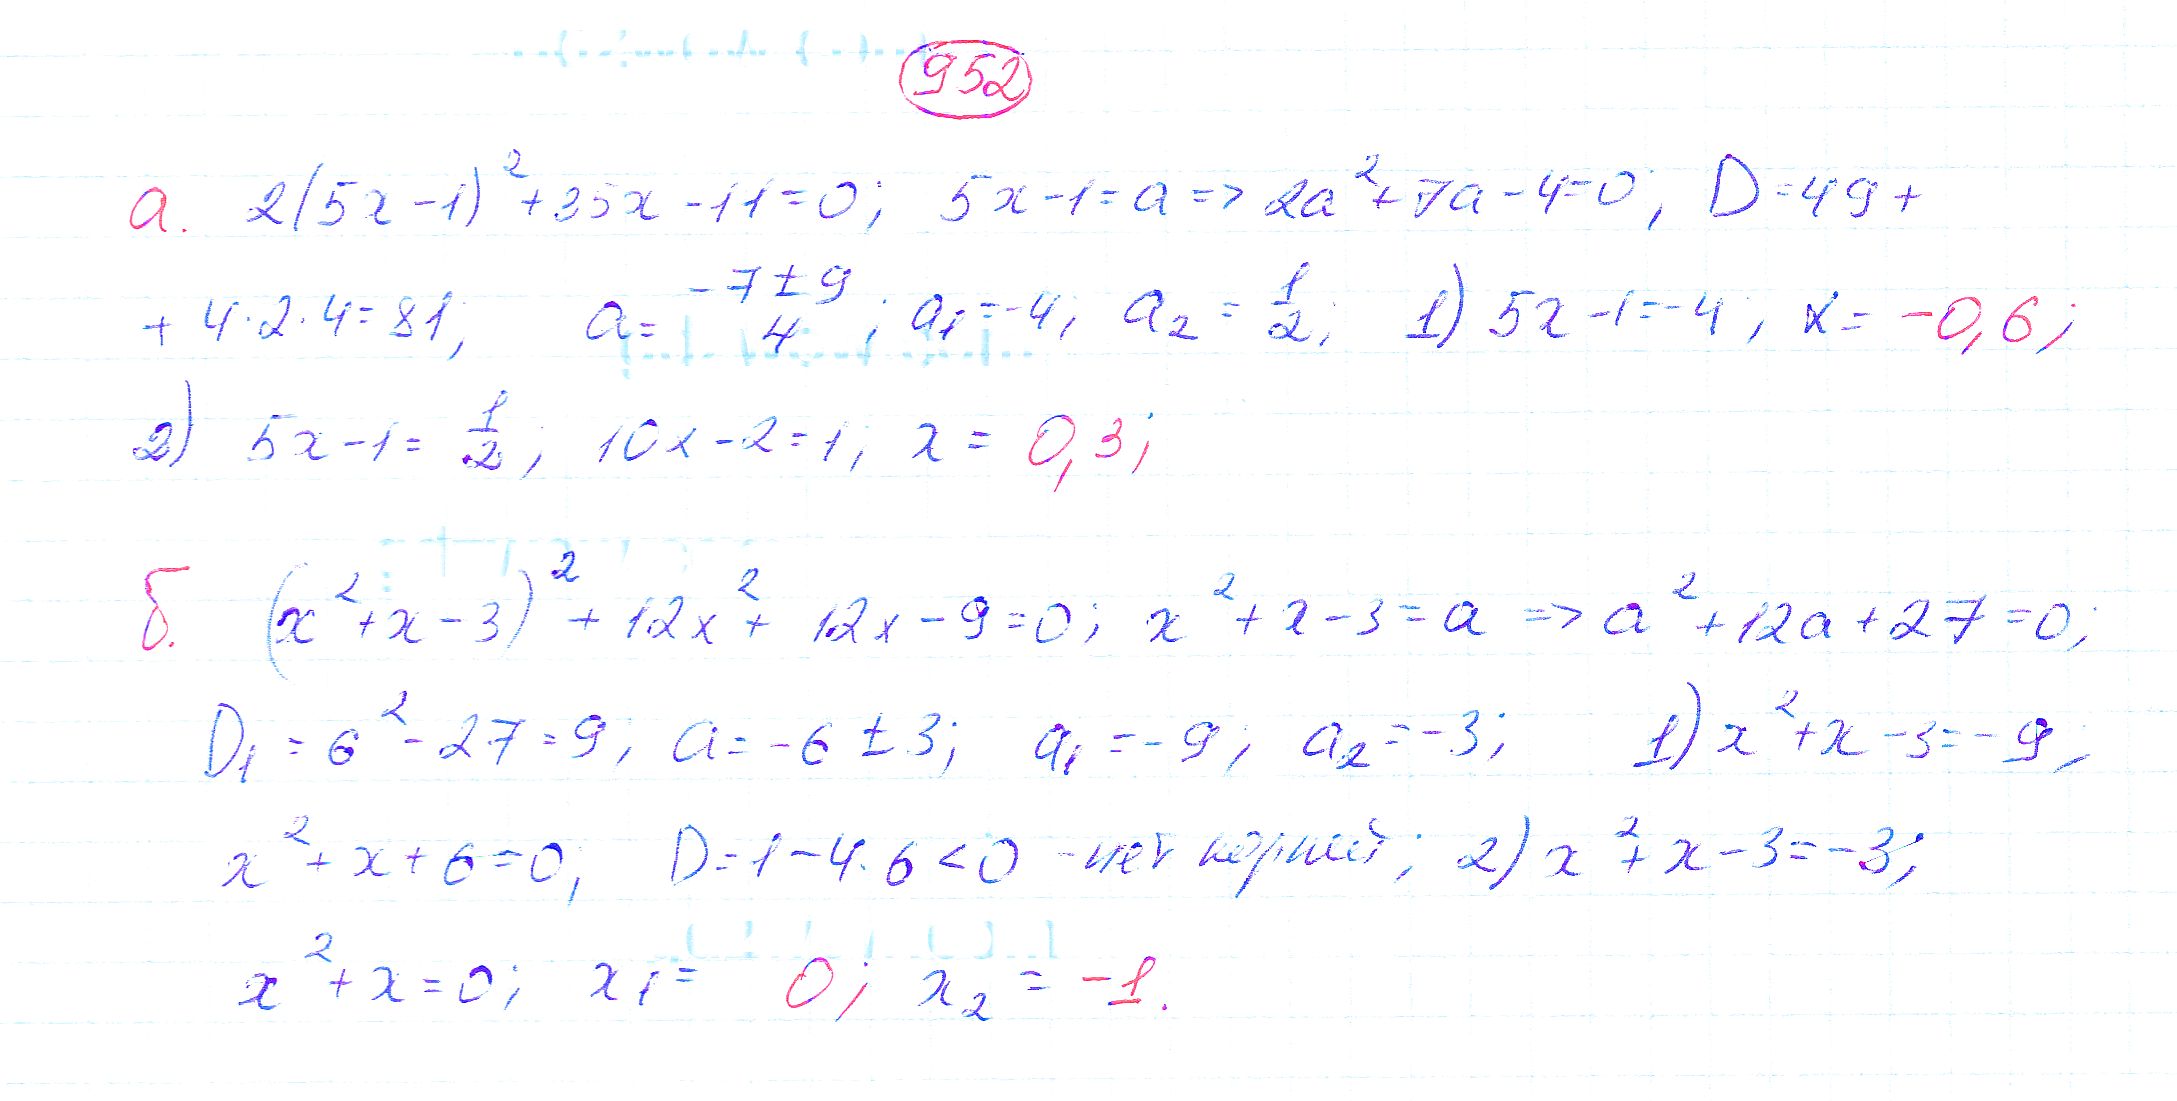 952
а. 2(5x-1)²+35x-11=0; 5x-1=a => 2a²+7a-4=0; D=49+
+4·2·4=81; a=(-7±9)/4; a₁=-4, a₂=1/2; 1) 5x-1=-4; x=-0,6;
2) 5x-1=1/2; 10x-2=1; x=0,3;
б. (x²+x-3)²+12x²+12x-9=0; x²+x-3=a => a²+12a+27=0;
D₁=6²-27=9; a=-6±3; a₁=-9; a₂=-3; 1) x²+x-3=-9;
x²+x+6=0; D=1-4·6<0 -нет корней; 2) x²+x-3=-3;
x²+x=0; x₁=0; x₂=-1.